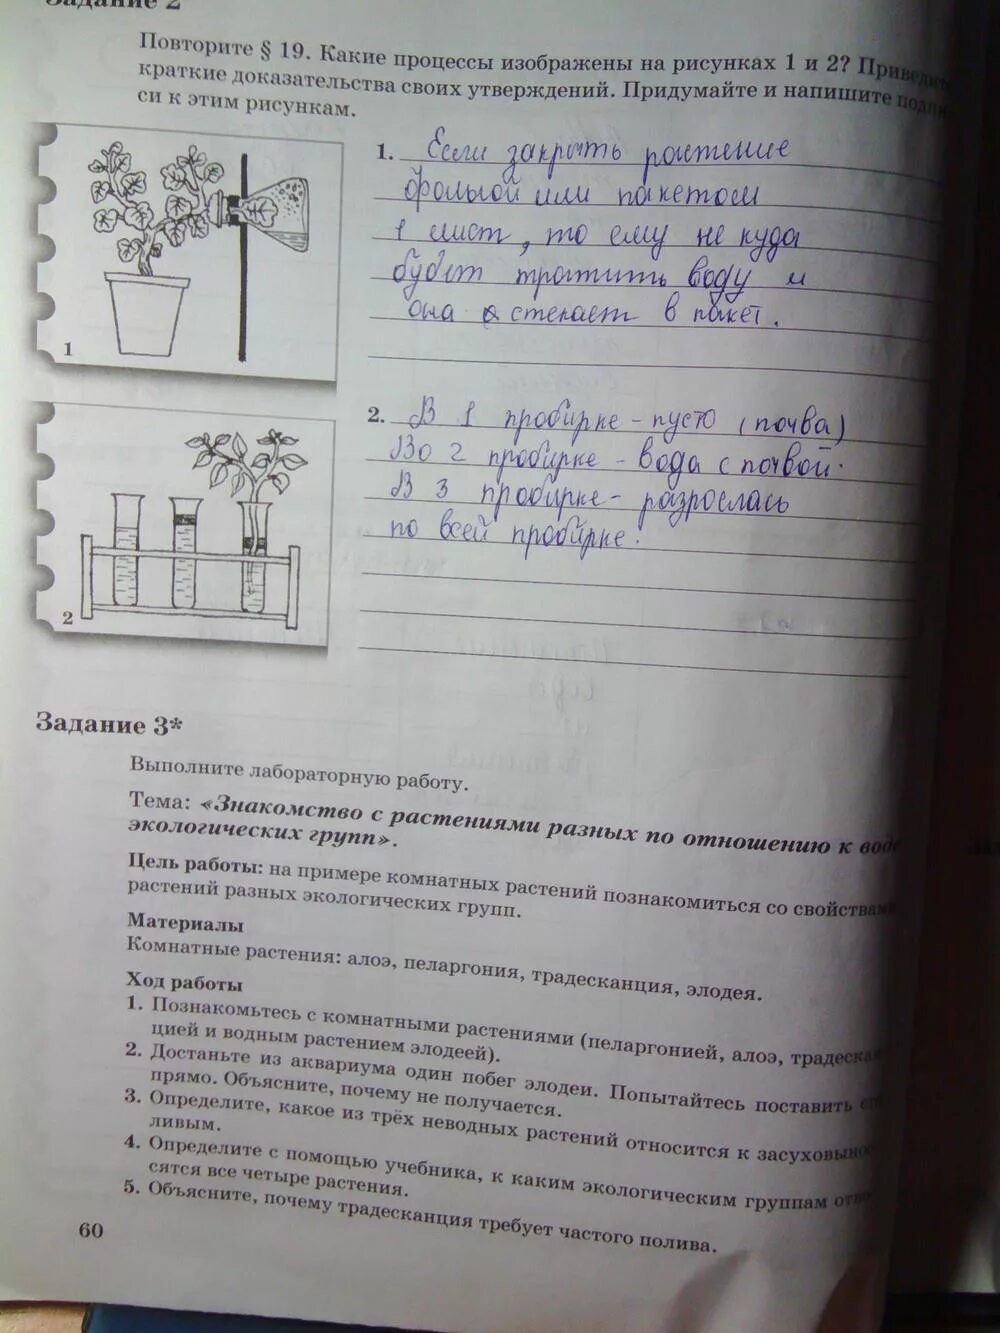 Задание 2
Повторите § 19. Какие процессы изображены на рисунках 1 и 2?
краткие доказательства своих утверждений. Придумайте и напишите
си к этим рисункам.
1
1. Если закрыть растение
фольгой или пакетом
1 лист, то ему не куда
будет тратить воду и
она стекает в пакет.
2
2. В 1 пробирке - пусто (почва)
Во 2 пробирке - вода с почвой.
В 3 пробирке - разрослась
по всей пробирке.
Задание 3*
Выполните лабораторную работу.
Тема: «Знакомство с растениями разных по отношению к воде
экологических групп».
Цель работы: на примере комнатных растений познакомиться со свойствами
растений разных экологических групп.
Материалы
Комнатные растения: алоэ, пеларгония, традесканция, элодея.
Ход работы
1. Познакомьтесь с комнатными растениями (пеларгонией, алоэ,
цией и водным растением элодеей).
2. Достаньте из аквариума один побег элодеи. Попытайтесь поставить
прямо. Объясните, почему не получается.
3. Определите, какое из трёх неводных растений относится к
ливым.
4. Определите с помощью учебника, к каким экологическим группам
сятся все четыре растения.
5. Объясните, почему традесканция требует частого полива.
60